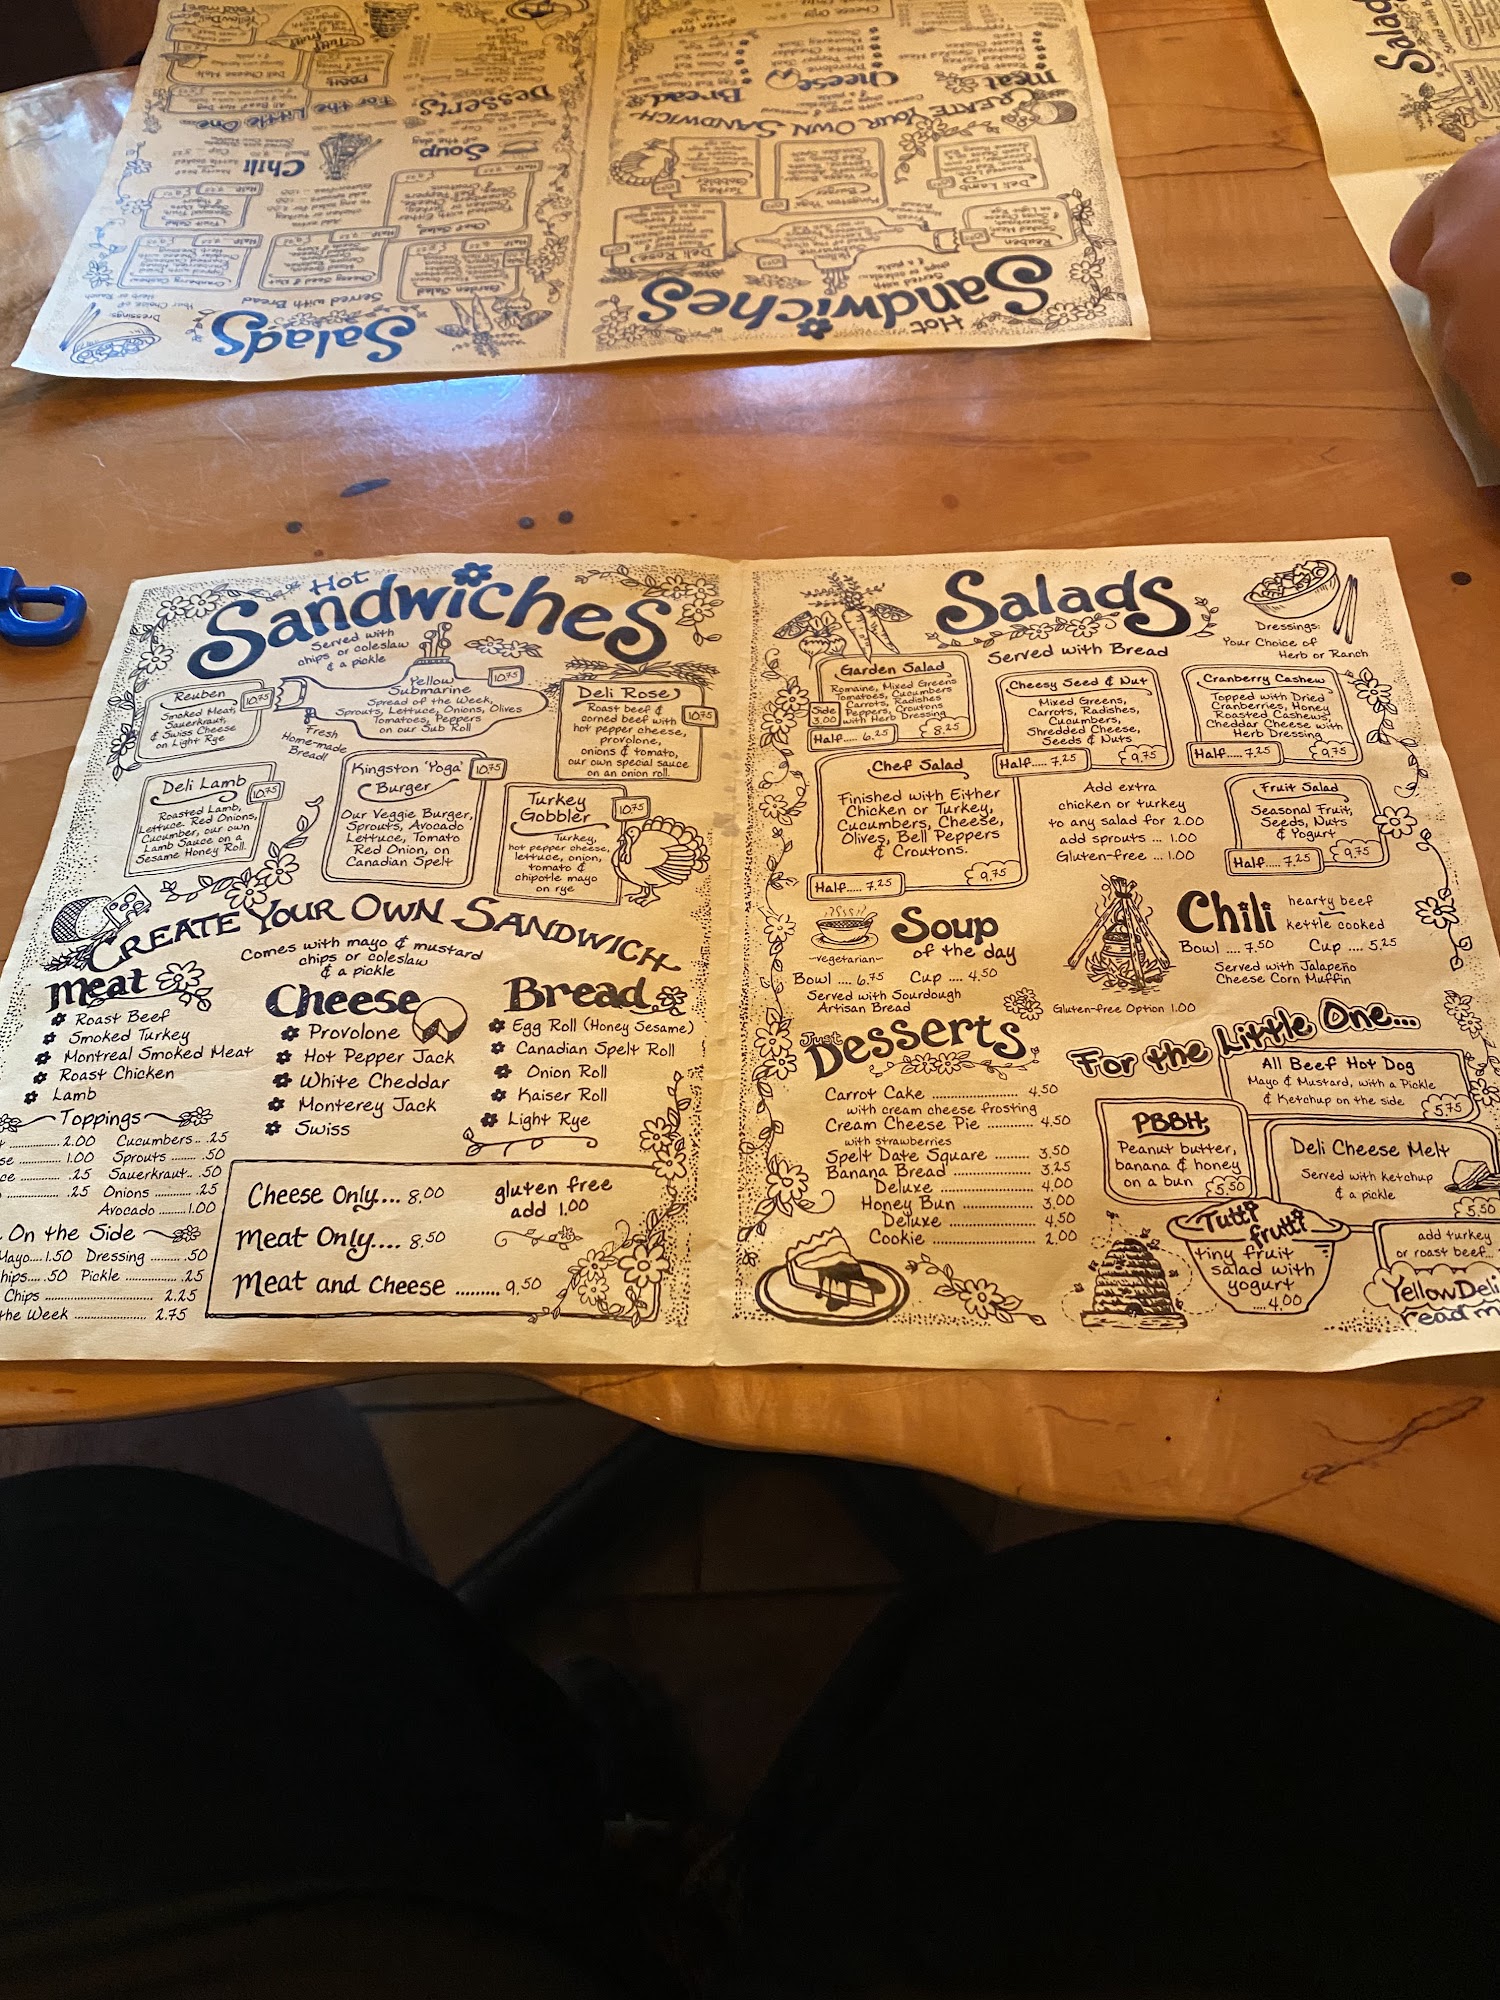 Hot
Sandwiches
Served with
chips or coleslaw
& a pickle
Reuben
10.75
Smoked Meat,
Sauerkraut,
& Swiss Cheese
on Light Rye
Yellow
Submarine
10.75
Spread of the Week,
Sprouts, Lettuce, Onions, Olives
Tomatoes, Peppers
on our Sub Roll
Fresh
Home-made
Bread!
Deli Rose
10.75
Roast beef &
corned beef with
hot pepper cheese,
provolone,
onions & tomato,
our own special sauce
on an onion roll.
Deli Lamb
10.75
Roasted Lamb,
Lettuce, Red Onions,
Cucumber, our own
Lamb Sauce on a
Sesame Honey Roll.
Kingston 'Yoga'
Burger
10.75
Our Veggie Burger,
Sprouts, Avocado
Lettuce, Tomato
Red Onion, on
Canadian Spelt
Turkey
Gobbler
10.75
Turkey,
hot pepper cheese,
lettuce, onion,
tomato &
chipotle mayo
on rye
Create Your Own Sandwich
Comes with mayo & mustard
chips or coleslaw
& a pickle
Meat
Roast Beef
Smoked Turkey
Montreal Smoked Meat
Roast Chicken
Lamb
Cheese
Provolone
Hot Pepper Jack
White Cheddar
Monterey Jack
Swiss
Bread
Egg Roll (Honey Sesame)
Canadian Spelt Roll
Onion Roll
Kaiser Roll
Light Rye
Toppings
2.00 Cucumbers .. .25
1.00 Sprouts ....... .50
.25 Sauerkraut.. .50
.25 Onions ......... .25
Avocado ........ 1.00
On the Side
Mayo.... 1.50 Dressing ........ .50
.50 Pickle ............... .25
Chips ........................ 2.25
the Week .................. 2.75
Cheese Only.... 8.00
Meat Only.... 8.50
Meat and Cheese ......... 9.50
gluten free
add 1.00
Salads
Served with Bread
Dressings:
Your Choice of
Herb or Ranch
Garden Salad
Romaine, Mixed Greens
Tomatoes, Cucumbers
Carrots, Radishes
Peppers, Croutons
with Herb Dressing
Side
3.00
Half..... 6.25
8.25
Cheesy Seed & Nut
Mixed Greens,
Carrots, Radishes,
Cucumbers,
Shredded Cheese,
Seeds & Nuts
Half..... 7.25
9.75
Cranberry Cashew
Topped with Dried
Cranberries, Honey
Roasted Cashews,
Cheddar Cheese with
Herb Dressing
Half..... 7.25
9.75
Chef Salad
Finished with Either
Chicken or Turkey,
Cucumbers, Cheese,
Olives, Bell Peppers
& Croutons.
Half..... 7.25
9.75
Add extra
chicken or turkey
to any salad for 2.00
add sprouts ... 1.00
Gluten-free ... 1.00
Fruit Salad
Seasonal Fruit,
Seeds, Nuts
& Yogurt
Half..... 7.25
9.75
Soup
of the day
~vegetarian~
Bowl .... 6.75 Cup .... 4.50
Served with Sourdough
Artisan Bread
Chili
hearty beef
kettle cooked
Bowl .... 7.50 Cup .... 5.25
Served with Jalapeño
Cheese Corn Muffin
Gluten-free Option 1.00
Just
Desserts
Carrot Cake ..................... 4.50
with cream cheese frosting
Cream Cheese Pie ........... 4.50
with strawberries
Spelt Date Square ......... 3.50
Banana Bread ................. 3.25
Deluxe ..................... 4.00
Honey Bun ................ 3.00
Deluxe .................... 4.50
Cookie ........................ 2.00
For the Little One...
All Beef Hot Dog
Mayo & Mustard, with a Pickle
& Ketchup on the side
5.75
PBBH
Peanut butter,
banana & honey
on a bun
5.50
Deli Cheese Melt
Served with ketchup
& a pickle
5.50
Tutti
frutti
tiny fruit
salad with
yogurt
....4.00
add turkey
or roast beef...
YellowDeli
read m